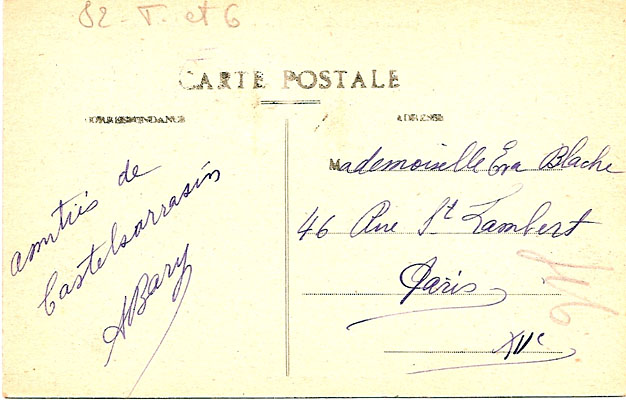 82 - T. et G
CARTE POSTALE
CORRESPONDANCE
ADRESSE
amitiés de
Castelsarrasin
ABary
Mademoiselle Eva Blache
46 Rue St Lambert
Paris
XVe